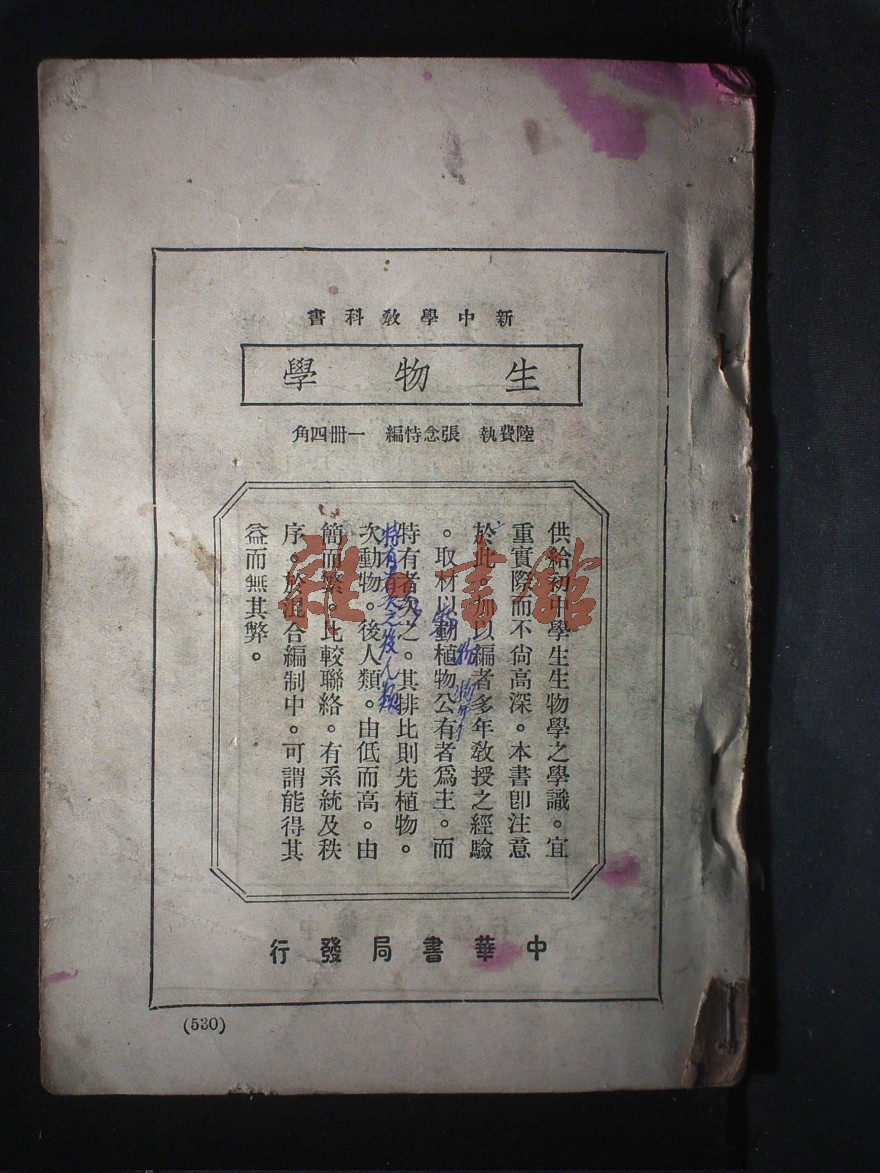 新中學教科書
生物學
陸費執 張念恃編 一冊四角
供給初中學生生物學之學識。宜
重實際而不尙高深。本書卽注意
於此。加以編者多年敎授之經驗
。取材以動植物公有者爲主。而
特有者次之。其排比則先植物。
次動物。後人類。由低而高。由
簡而繁。比較聯絡。有系統及秩
序。於混合編制中。可謂能得其
益而無其弊。
中華書局發行
(530)
雜書館